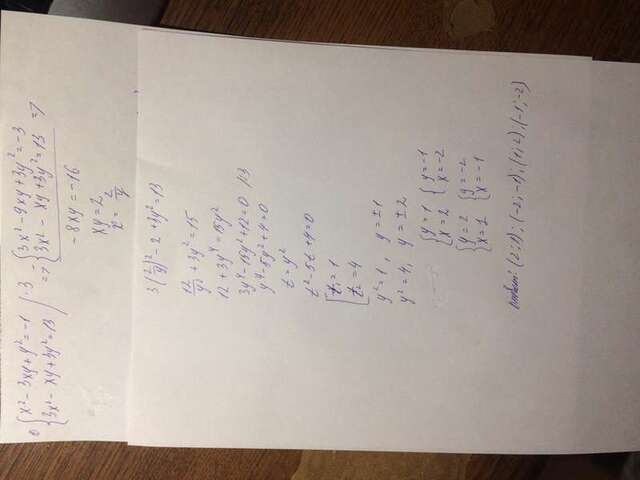 {x² - 3xy + y² = -1 | ·3
{3x² - xy + 3y² = 13
=> - {3x² - 9xy + 3y² = -3
{3x² - xy + 3y² = 13 =>
-8xy = -16
xy = 2
x = 2/y
3(2/y)² - 2 + 3y² = 13
12/y² + 3y² = 15
12 + 3y⁴ = 15y²
3y⁴ - 15y² + 12 = 0 /3
y⁴ - 5y² + 4 = 0
t = y²
t² - 5t + 4 = 0
[t₁ = 1
[t₂ = 4
y² = 1, y = ±1
y² = 4, y = ±2
{y = 1 {y = -1
{x = 2 {x = -2
{y = 2 {y = -2
{x = 1 {x = -1
Ответ: (2; 1); (-2; -1); (1; 2); (-1; -2)